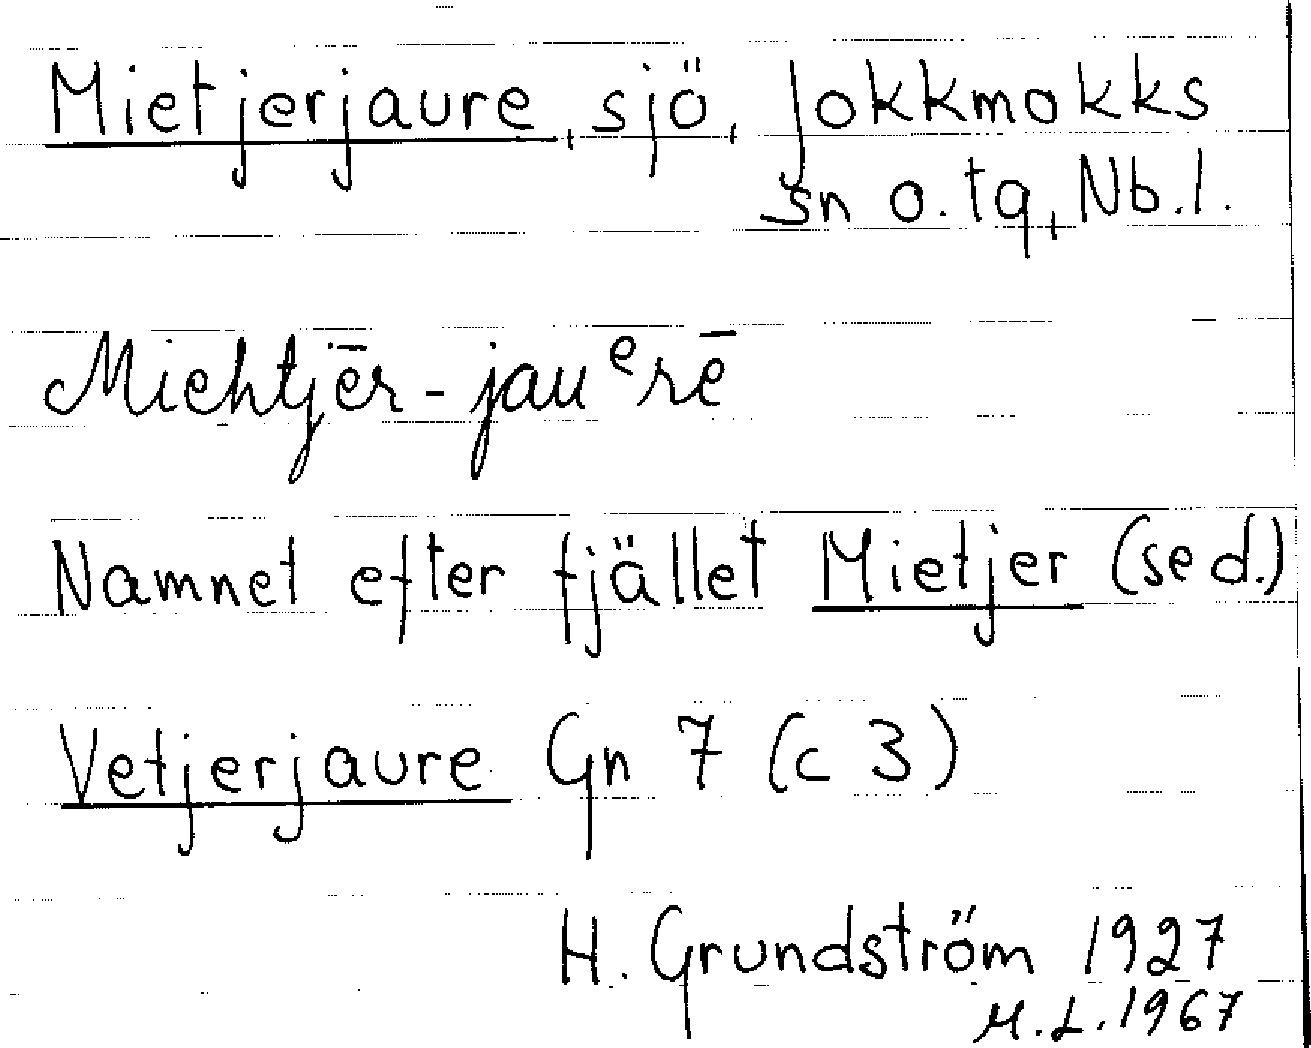 Mietjerjaure, sjö, Jokkmokks
sn o. tg, Nb.l.
Miehtjēr-jauᵉrē
Namnet efter fjället Mietjer (se d.)
Vetjerjaure Gn 7 (c 3)
H. Grundström 1927
M.L. 1967